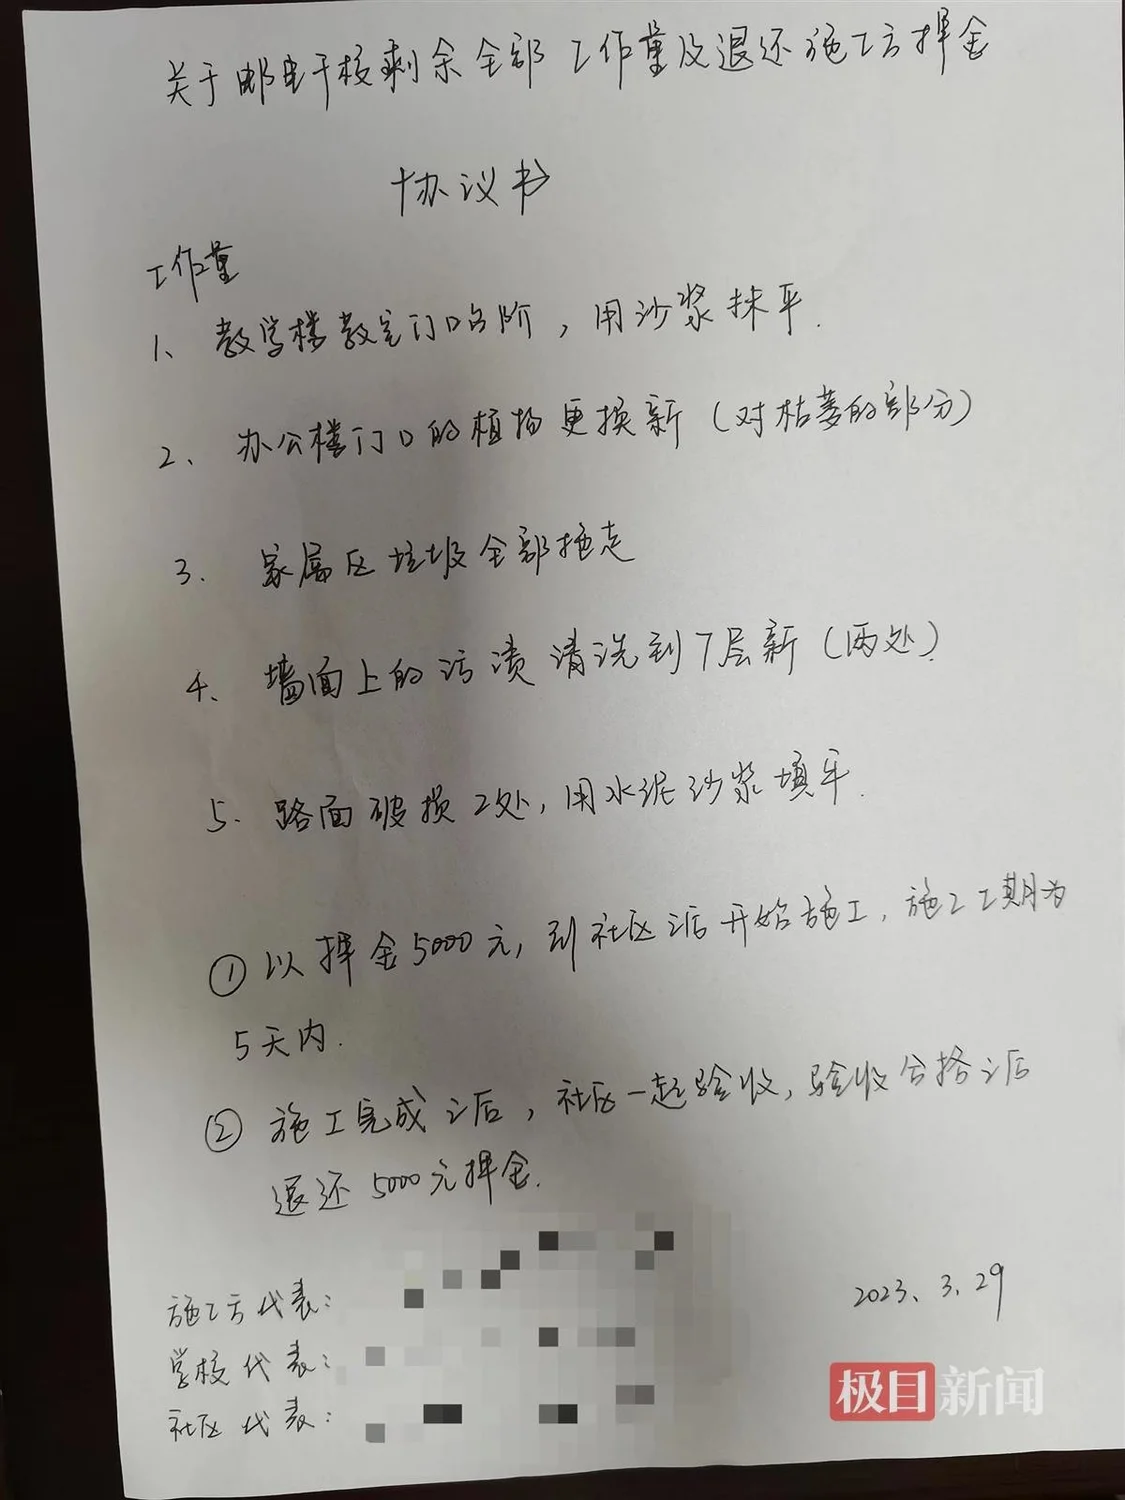 关于邮电干校剩余全部工作量及退还施工方押金
协议书
工作量
1、教学楼教室门口台阶，用沙浆抹平.
2、办公楼门口的植物更换新（对枯萎的部分）
3. 家属区垃圾全部拖走
4、墙面上的污渍清洗到7层新（两处）.
5. 路面破损2处，用水泥沙浆填平.
① 以押金5000元，到社区之后开始施工，施工工期为
5天内.
② 施工完成之后，社区一起验收，验收合格之后
退还5000元押金.
施工方代表：
学校代表：
社区代表：
2023、3.29
极目新闻